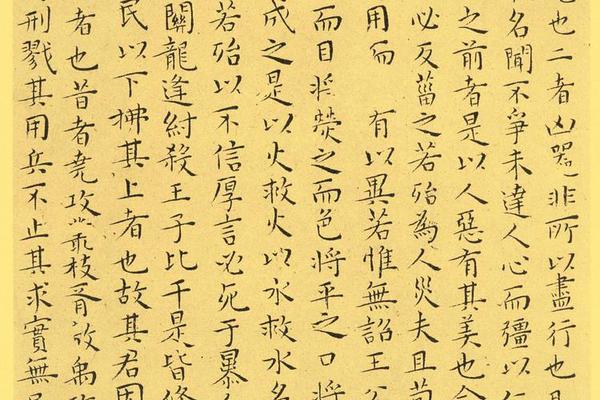 也二者凶器非所以盡行也且
名聞不爭未達人心而彊以仁
之前者是以人惡有其美也命
必反菑之若殆為人災夫且苟
用而 有以異若惟無詔王公
而目将熒之而色将平之口将
成之是以火救火以水救水名
若殆以不信厚言必死于暴人
關龍逢紂殺王子比干是皆脩
民以下拂其上者也故其君因
者也昔者堯攻叢枝胥敖禹攻
刑戮其用兵不止其求實無